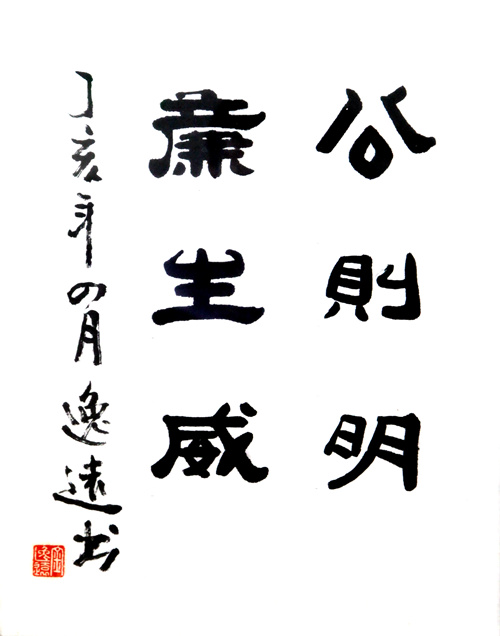 公則明
廉生威
丁亥年四月逸遠书